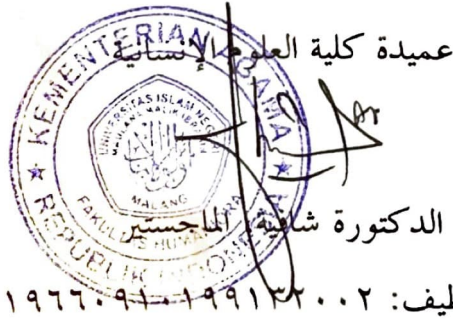 عميدة كلية العلوم الإنسانية
KEMENTERIAN AGAMA
UNIVERSITAS ISLAM
MALANG
FAKULTAS HUMANIORA
REPUBLIK INDONESIA
الدكتورة شافية، الماجستير
ظيف: ١٩٦٦٠٩١٠١٩٩١٣٢٠٠٢